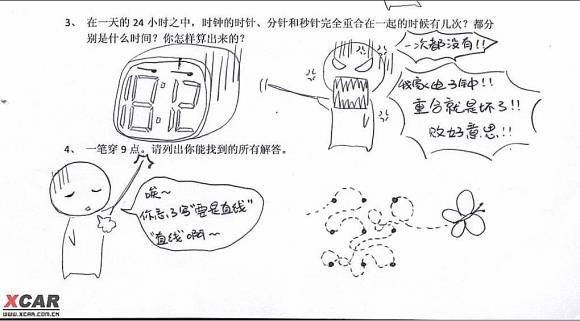 3、 在一天的 24 小时之中，时钟的时针、分针和秒针完全重合在一起的时候有几次？都分
别是什么时间？你怎样算出来的？
一次都没有!!
我家电子钟!!
重合就是坏了!!
败好意思!!
4、 一笔穿 9 点。请列出你能找到的所有解答。
唉～
你忘了写"要是直线"
"直线"啊～
XCAR
WWW.XCAR.COM.CN